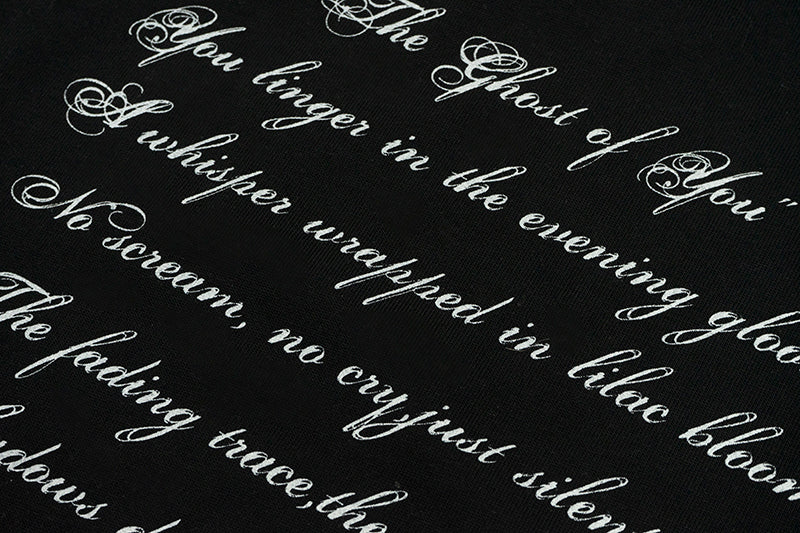 The Ghost of You"
You linger in the evening gloo
A whisper wrapped in lilac bloom
No scream, no cry,just silen
The fading trace,the
dows